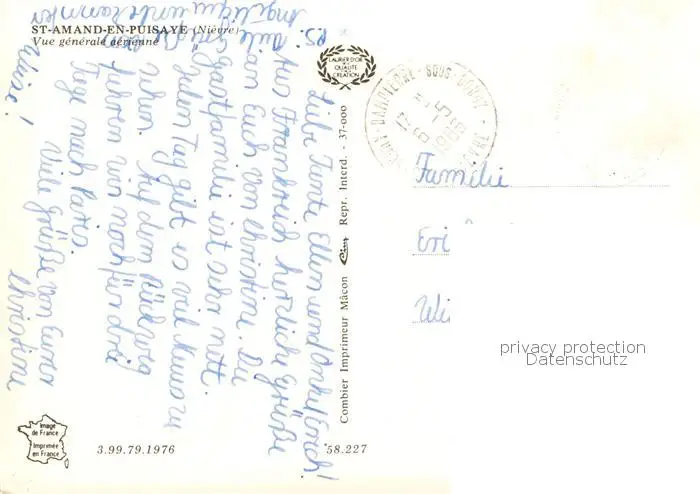 ST-AMAND-EN-PUISAYE (Nièvre)
Vue générale aérienne
LAURIER D'OR
DE LA
QUALITÉ
DE LA
CRÉATION
Liebe Tante Ellen und Onkel Erich!
Aus Frankreich herzliche Grüße
an Euch von Christine. Die
Gastfamilie ist sehr nett.
Jeden Tag gibt es viel Neues zu
sehen. Auf dem Rückweg
fahren wir noch für drei
Tage nach Paris.
Viele Grüße von Eurer
Christine
PS: Viele Grüße
Angélique
Combier Imprimeur Mâcon Cim Repr. Interd. - 37-000
DAMPIERRE - SOUS - BOUHY
NIÈVRE
Familie
Eri
Wi
privacy protection
Datenschutz
Image
de France
Imprimée
en France
3.99.79.1976
58.227